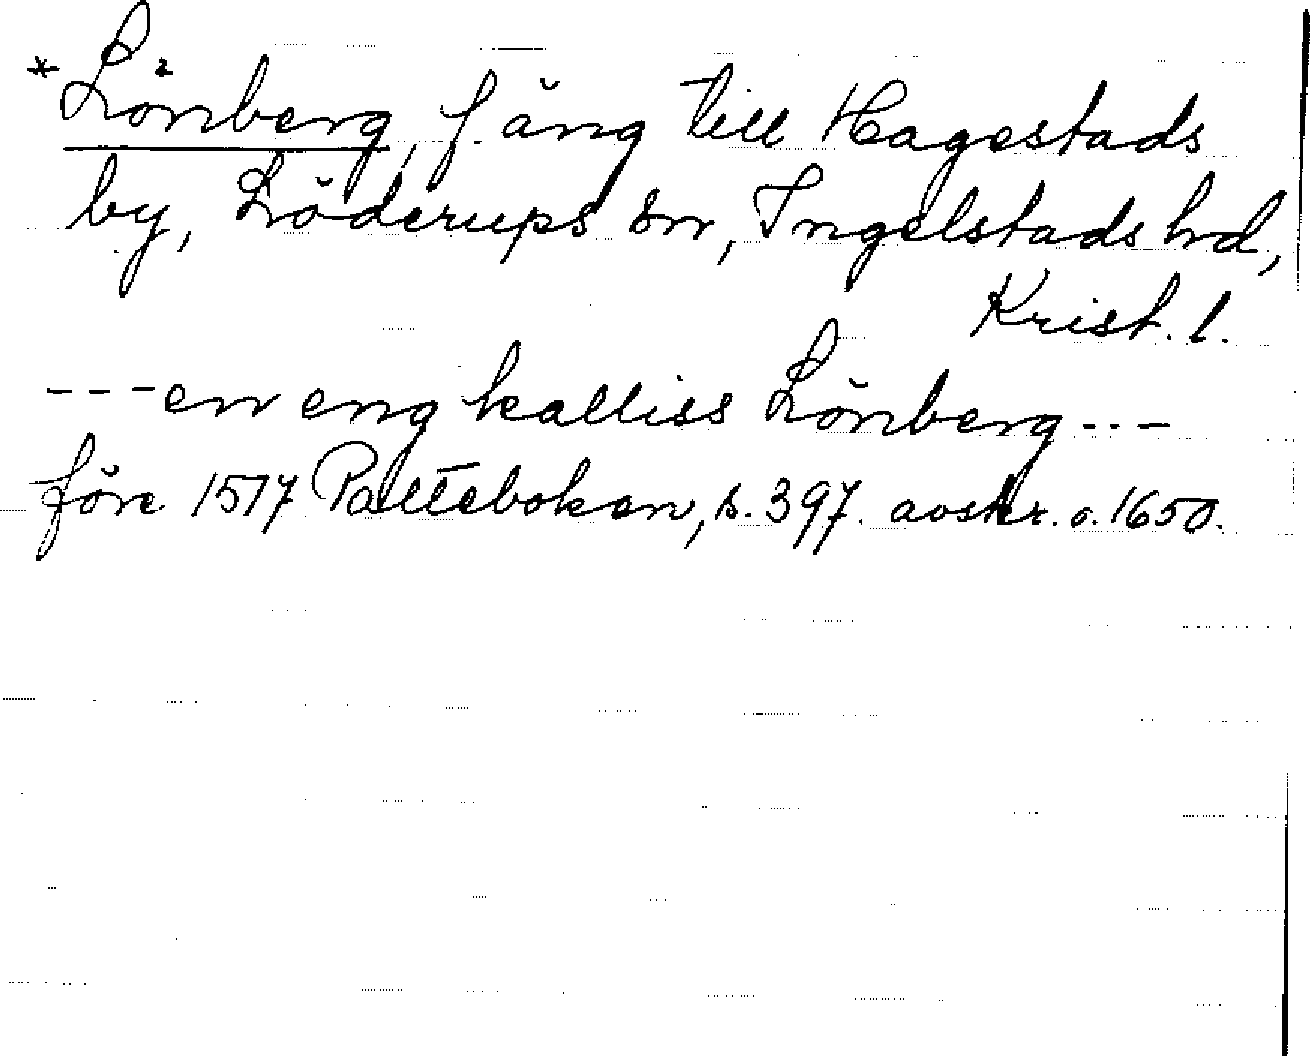 *Lönberg, f äng till Hagestads
by, Löderups sn, Ingelstads hd,
Krist. l.
---en eng kalliss Lönberg---
före 1517 Palteboken, s. 397. avskr. o. 1650.